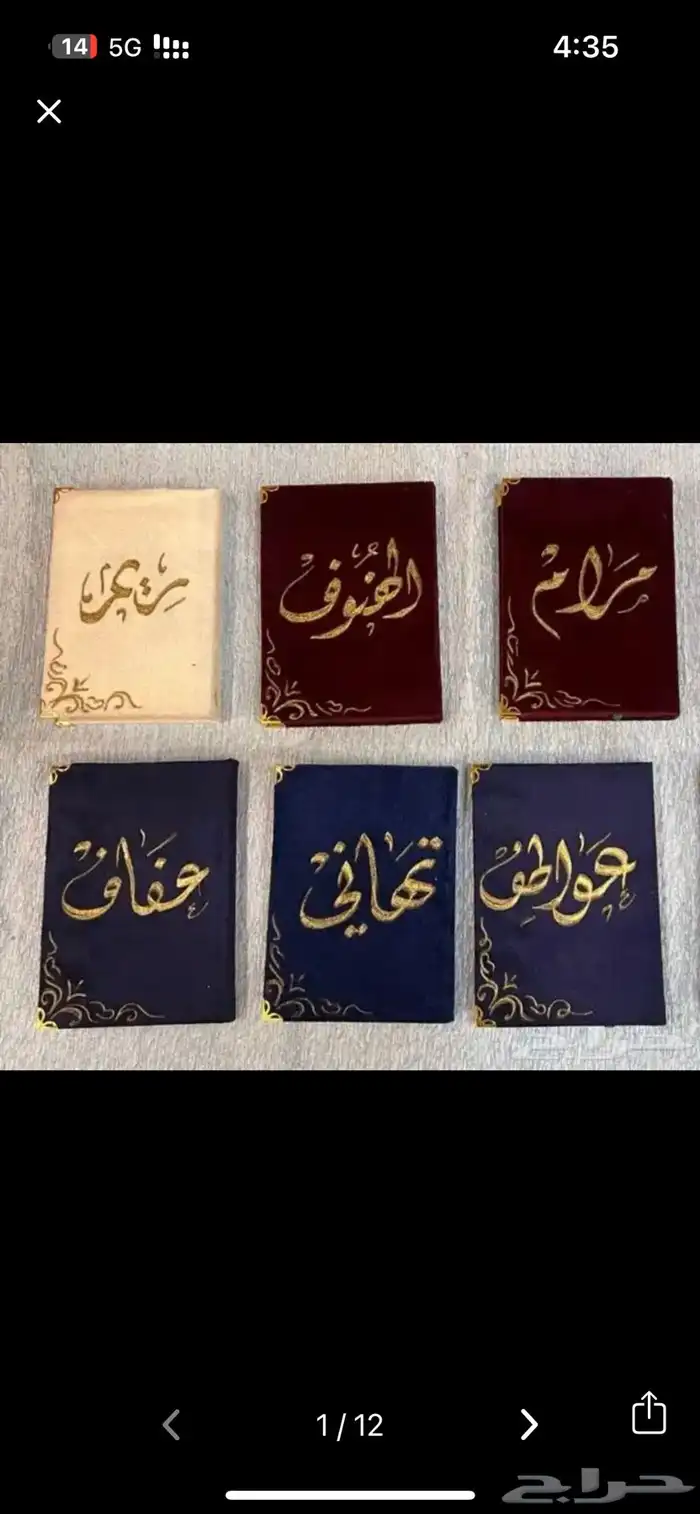 14 5G 4:35
مرام الهنوف مريم
عواطف تهاني عفاف
حراج
1 / 12
حراج